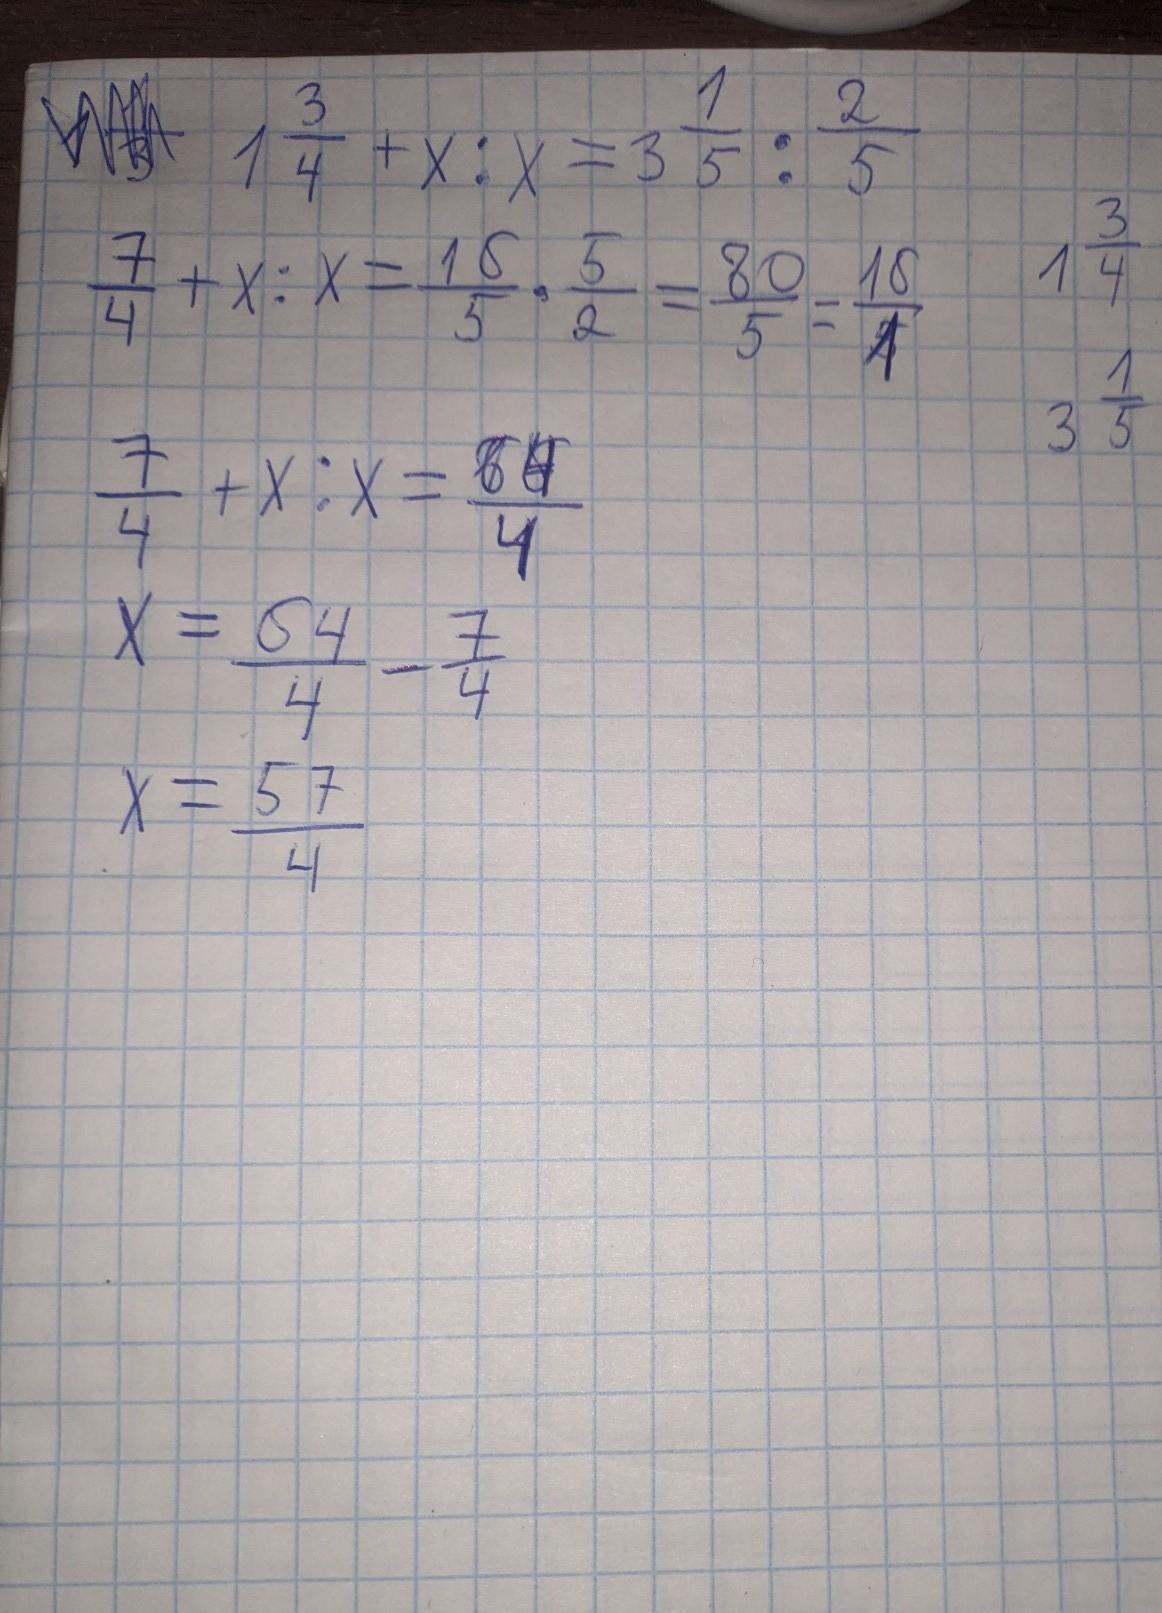 1 3/4 + x : x = 3 1/5 : 2/5
7/4 + x : x = 16/5 · 5/2 = 80/5 = 16/1
1 3/4
3 1/5
7/4 + x : x = 64/4
x = 64/4 - 7/4
x = 57/4